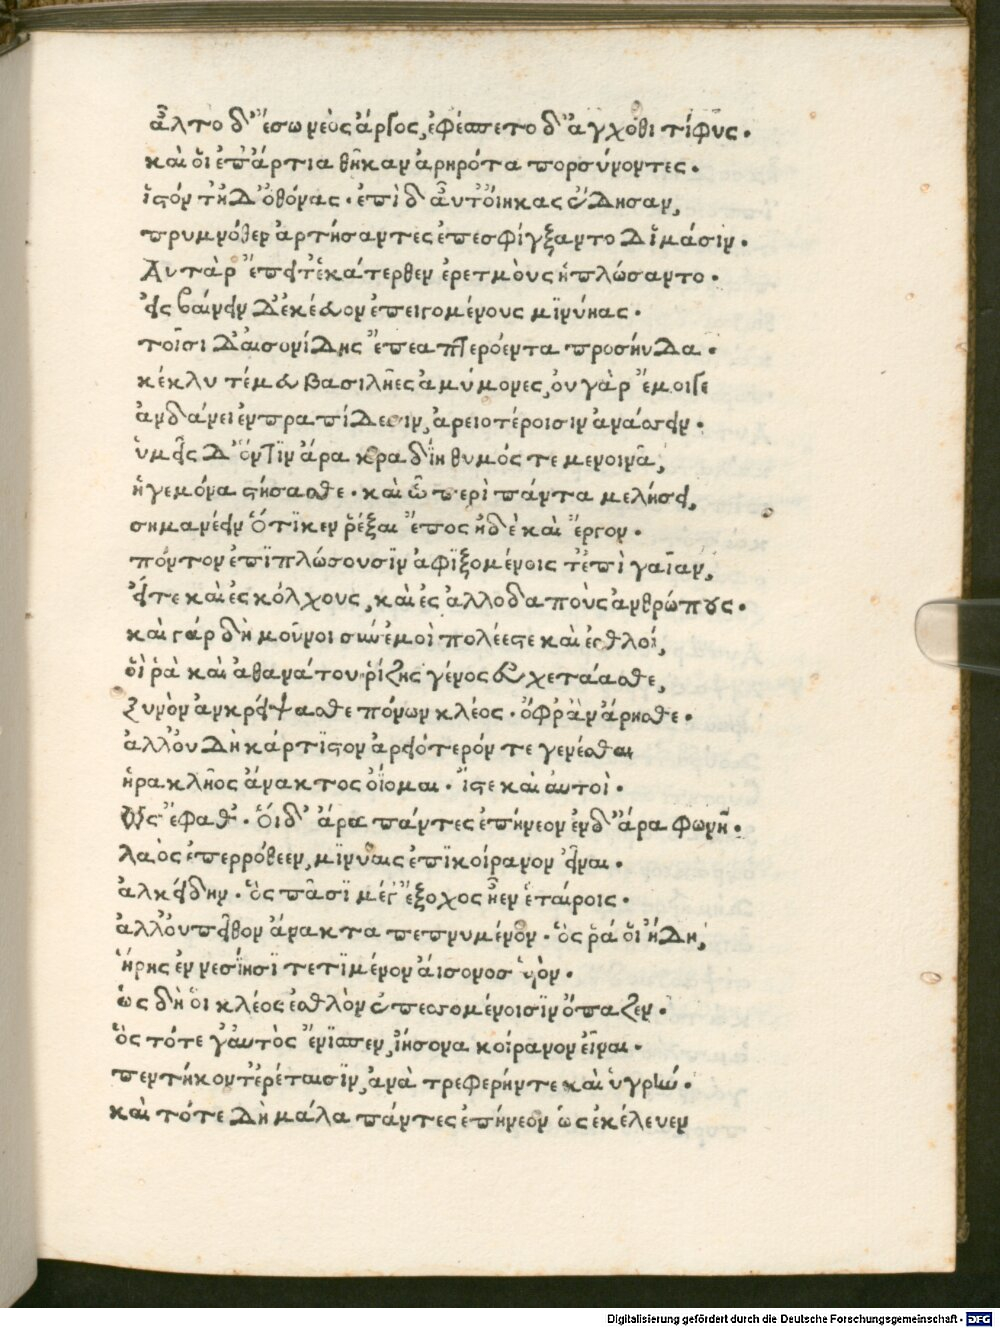 ἆλτο δ' ἔσω νεὸς ἄργος, ἐφέσπετο δ' ἀγχόθι τίφυς.
καὶ οἱ ἐπ' ἄρτια θῆκαν ἀρηρότα πορσύνοντες.
ἱστόν τ' ἠδ' ὀθόνας. ἐπὶ δ' αὖτ' οἴηκας ἔδησαν,
πρυμνόθεν ἀρτήσαντες ἐπεσφίγξαντο δ' ἱμάσιν.
Αὐτὰρ ἔπειτ' ἑκάτερθεν ἐρετμοὺς ἡπλώσαντο.
εἰσβαίνειν δ' ἐκέλευον ἐπειγομένους μινύηας.
τοῖσι δ' αἰσονίδης ἔπεα πτερόεντα προσηύδα.
κέκλυτέ μευ βασιλῆες ἀμύμονες, οὐ γὰρ ἔμοιγε
ἁνδάνει ἐν πραπίδεσιν, ἀρειοτέροισιν ἀνάσσειν.
ὑμεῖς δ' ὅντιν' ἄρα κραδίη θυμός τε μενοινᾷ,
ἡγεμόνα στήσασθε. καὶ ᾧ περὶ πάντα μελήσει,
σημανέειν ὅτι κεν ῥέξαι ἔπος ἠδὲ καὶ ἔργον.
πόντον ἐπιπλώσουσιν ἀφιξομένοις τ' ἐπὶ γαῖαν,
εἴτε καὶ ἐς κόλχους, καὶ ἐς ἀλλοδαποὺς ἀνθρώπους.
καὶ γάρ δὴ μοῦνοι σὺν ἐμοὶ πολέες τε καὶ ἐσθλοί,
οἵ ῥὰ καὶ ἀθανάτου ῥίζης γένος εὐχετάασθε,
ξυνὸν ἀνκρείψασθε πόνων κλέος. ὄφρ' ἂν ἄρησθε.
ἀλλ' οὐ δὴ κάρτιστον ἀρειότερόν τε γενέσθαι
ἡρακλῆος ἄνακτος ὀΐομαι. ἴστε καὶ αὐτοὶ.
Ὣς ἔφαθ'. Οἱ δ' ἄρα πάντες ἐπῄνεον ἐν δ' ἄρα φωνῇ.
λαὸς ἐπερρόθεεν, μινύαις ἐπικοίρανον εἶναι.
ἀλκείδην. ὃς πᾶσι μέγ' ἔξοχος ἦεν ἑταίροις.
ἀλλ' οὐ πεῖθον ἄνακτα πεπνυμένον. ὃς ῥά οἱ ἤδη,
ἥρης ἐννεσίῃσι τετιμένον αἴσονος υἱὸν.
ὡς δὴ οἱ κλέος ἐσθλὸν ἐπεσσομένοισιν ὄπαζεν.
ὃς τότε γ' αὐτὸς ἔνισπεν, ἰήσονα κοίρανον εἶναι.
πεντήκοντ' ἐρέταισιν, ἀνὰ τρεφερήν τε καὶ ὑγρὴν.
καὶ τότε δὴ μάλα πάντες ἐπῄνεον ὡς ἐκέλευεν
Digitalisierung gefördert durch die Deutsche Forschungsgemeinschaft - DFG